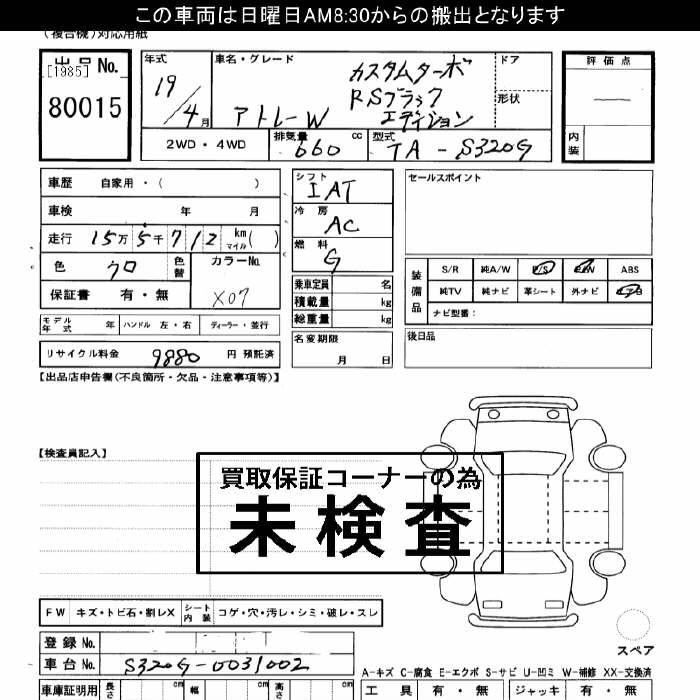 この車両は日曜日AM8:30からの搬出となります
(複合機)対応用紙
出品 No.
[1985]
80015
年式
19/4月
車名・グレード
アトレーW
カスタムターボ
RSブラック
エディション
ドア
形状
評価点
内装
2WD・4WD
排気量 660 cc
型式 TA-S320G
車歴 自家用・( )
車検 年 月
走行 15万5千712 km マイル( )
色 クロ 色替
カラーNo. X07
保証書 有・無
シフト IAT
冷房 AC
燃料 G
乗車定員 名
積載量 kg
総重量 kg
セールスポイント
装備品
S/R 純A/W P/S P/W ABS
純TV 純ナビ 革シート 外ナビ
ナビ型番:
モデル年式 年 ハンドル 左・右 ディーラー・並行
名変期限
月 日
後日品
リサイクル料金 9880 円 預託済
【出品店申告欄(不良箇所・欠品・注意事項等)】
【検査員記入】
買取保証コーナーの為
未検査
FW キズ・トビ石・割レX シート内装 コゲ・穴・汚レ・シミ・破レ・スレ
登録 No.
車台 No. S320G-0031002
スペア
A-キズ C-腐食 E-エクボ S-サビ U-凹ミ W-補修 XX-交換済
車庫証明用 長さ cm 幅 cm 高さ cm
工具 有・無 ジャッキ 有・無